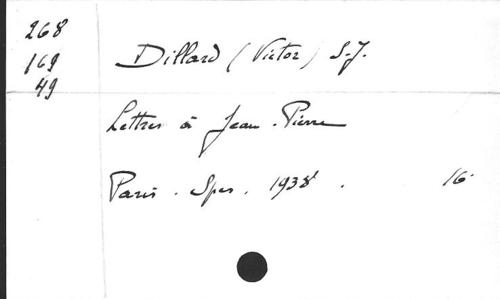 268
169
49
Dillard (Victor) S.J.
Lettres à Jean-Pierre
Paris. Spes. 1938.
16